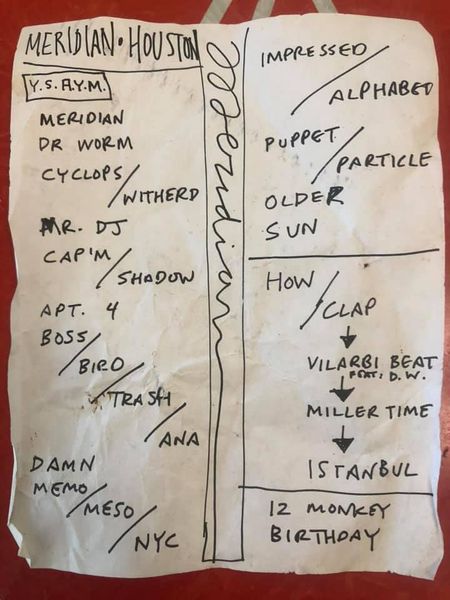 MERIDIAN • HOUSTON
Y.S.A.Y.M.
MERIDIAN
DR WORM
CYCLOPS/
WITHERD
MR. DJ
CAP'M/
SHADOW
APT. 4
BOSS/
BIRD/
TRASH/
ANA
DAMN
MEMO/
MESO/
NYC
Meridian
IMPRESSED/
ALPHABED
PUPPET/
PARTICLE
OLDER
SUN
HOW/
CLAP
VILARBI BEAT
FEAT: D.W.
MILLER TIME
ISTANBUL
12 MONKEY
BIRTHDAY